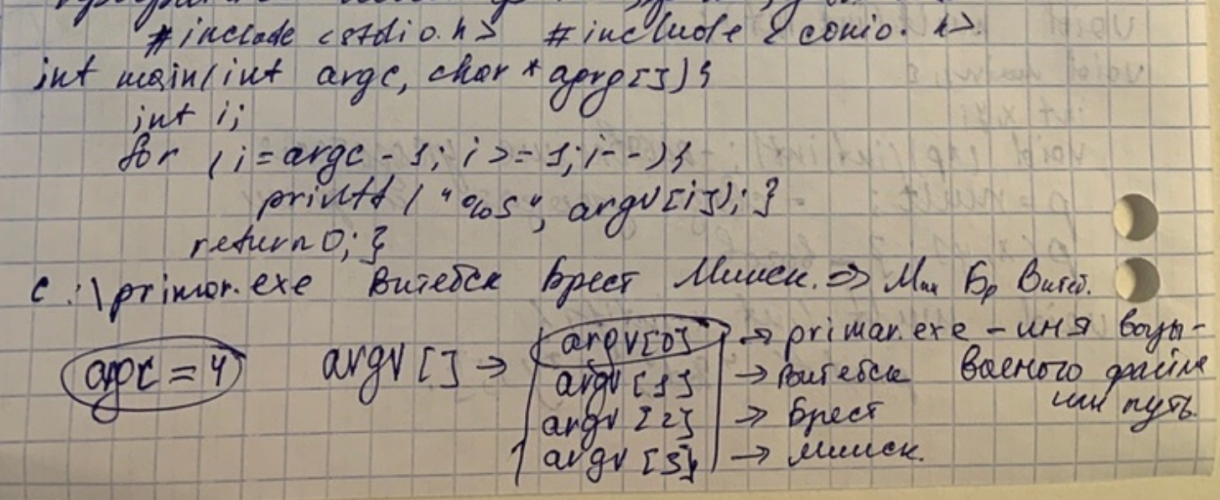 #include <stdio.h> #include <conio.h>
int main(int argc, char *aprg[]){
int i;
for (i=argc-1; i>=1; i--){
printf("%s", argv[i]); }
return 0; }
c:\primar.exe Витебск Брест Минск. => Мин Бр Витеб.
argc = 4 argv [] → argv[0] → primar.exe - имя вызы-
argv [1] → Витебск ваемого файла
argv [2] → Брест или путь.
argv [3] → Минск.